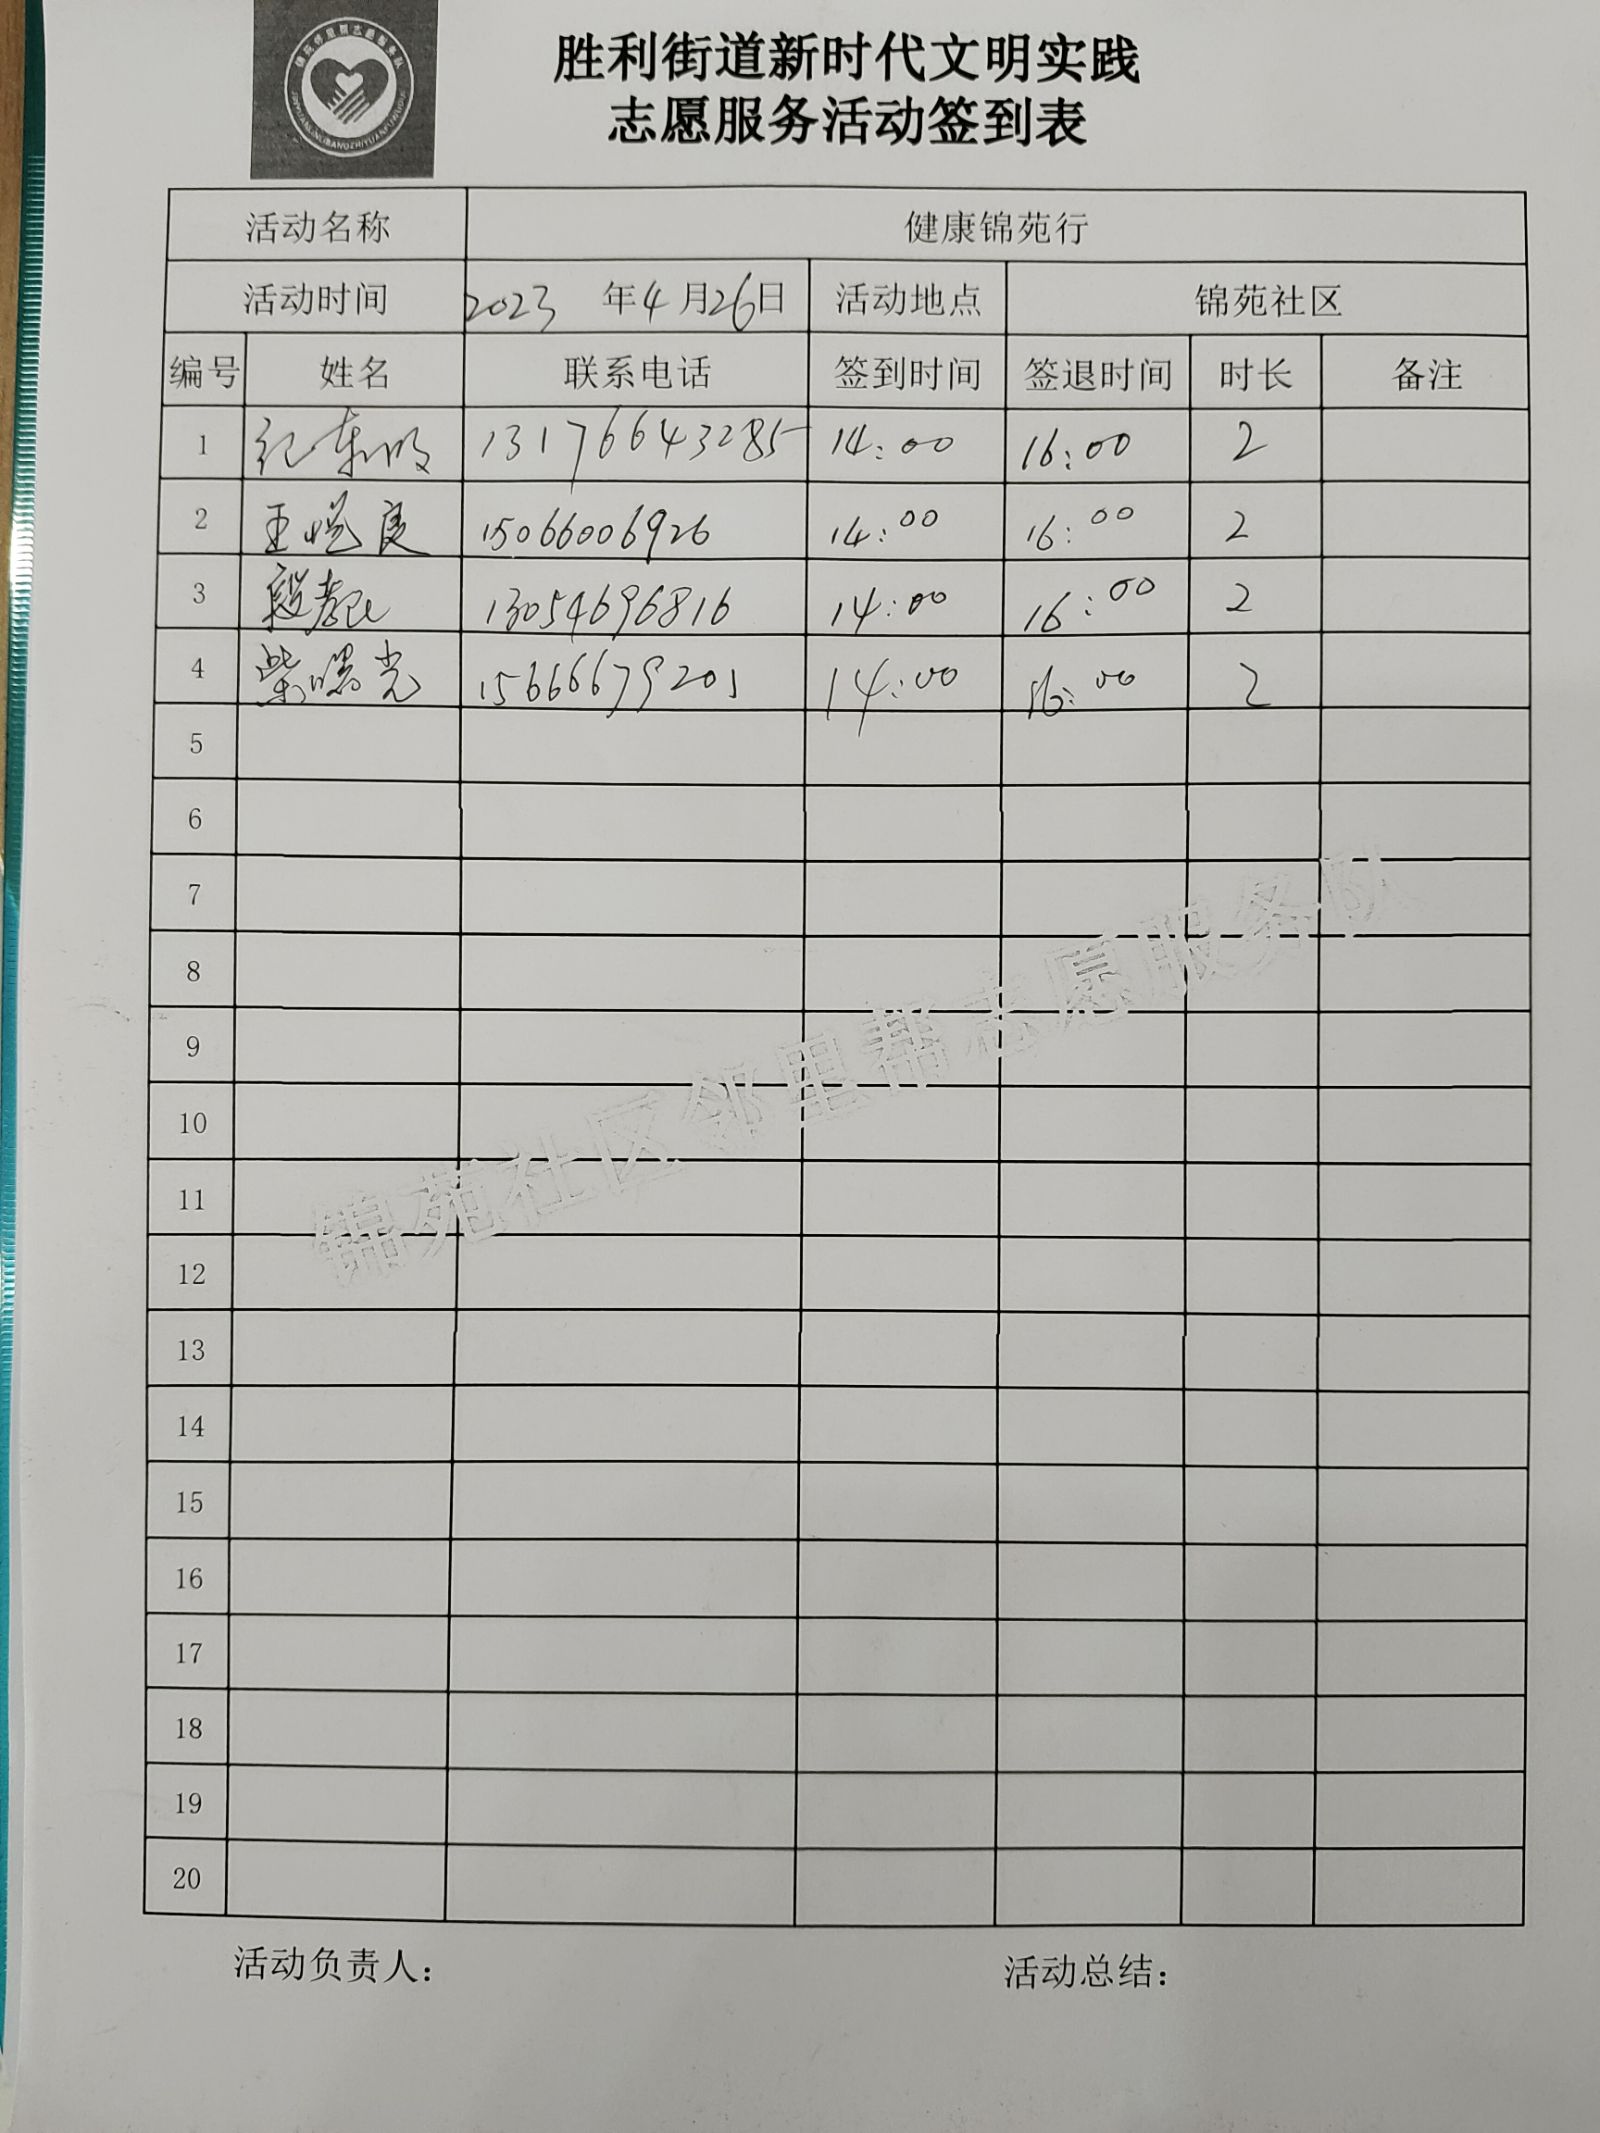 胜利街道新时代文明实践
志愿服务活动签到表
活动名称 健康锦苑行
活动时间 2023 年4月26日 活动地点 锦苑社区
编号 姓名 联系电话 签到时间 签退时间 时长 备注
1 纪东明 13176643285 14:00 16:00 2
2 王 15066006926 14:00 16:00 2
3 段 13054696816 14:00 16:00 2
4 柴曙光 15666679201 14:00 16:00 2
5
6
7
8
9
10
11
12
13
14
15
16
17
18
19
20
锦苑社区邻里帮志愿服务队
活动负责人： 活动总结：